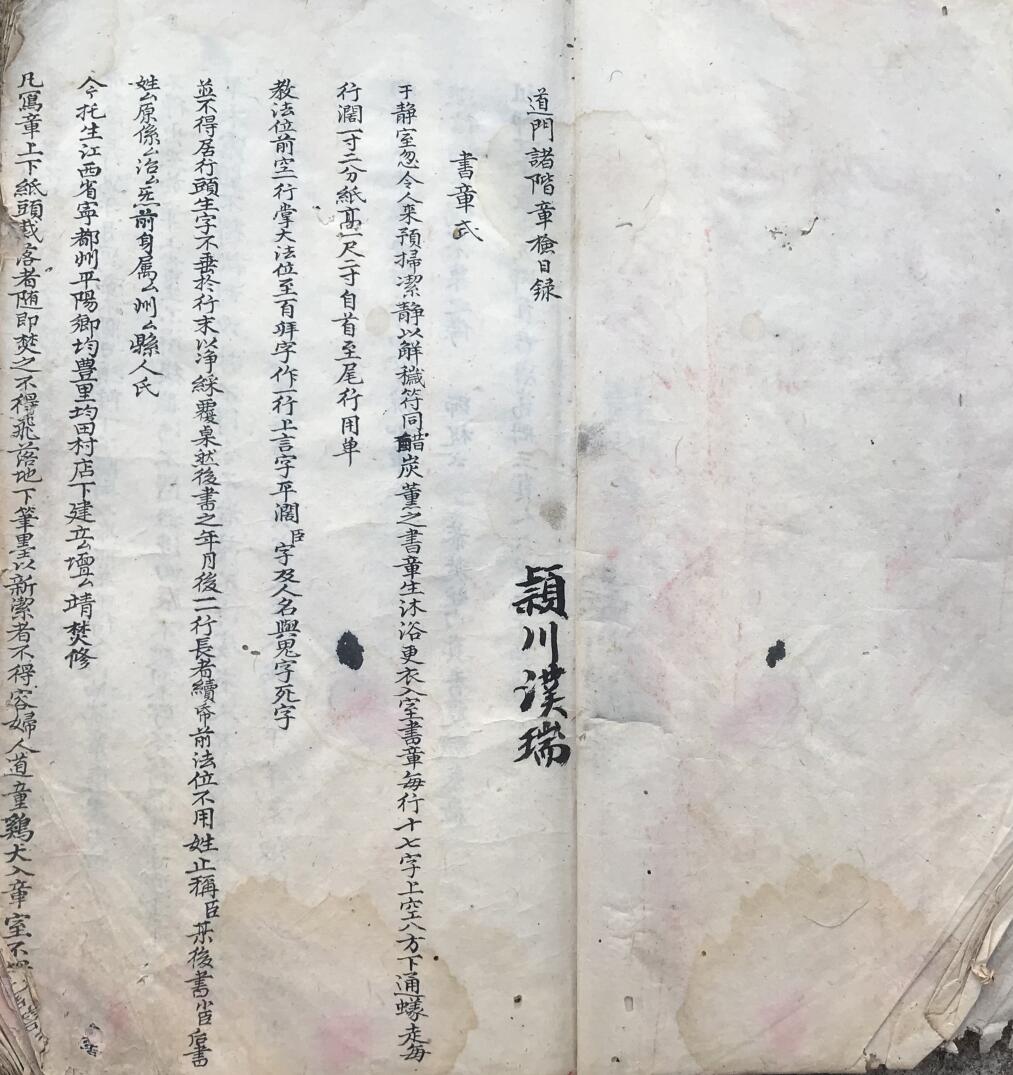 道門諸階章檢目錄
頴川漢瑞
書章式
于静室忽令人來預掃潔静以解穢符同醋炭薰之書章生沐浴更衣入室書章每行十七字上空八方下通蟻走每
行濶一寸二分紙高一尺二寸自首至尾行用单
教法位前空一行掌大法位至百拜字作一行上言字平濶臣字及人名與鬼字死字
並不得居行頭生字不垂於行末以净綵覆桌然後書之年月後二行長者續帋前法位不用姓止稱臣某後書
姓厶原係厶治厶炁前身属厶州厶縣人氏
今托生江西省寧都州平陽鄉均豊里均田村店下建立厶壇厶靖焚修
凡寫章上下紙頭裁落者随即焚之不得飛落地下筆墨以新潔者不得容婦人道童鷄犬入章室不